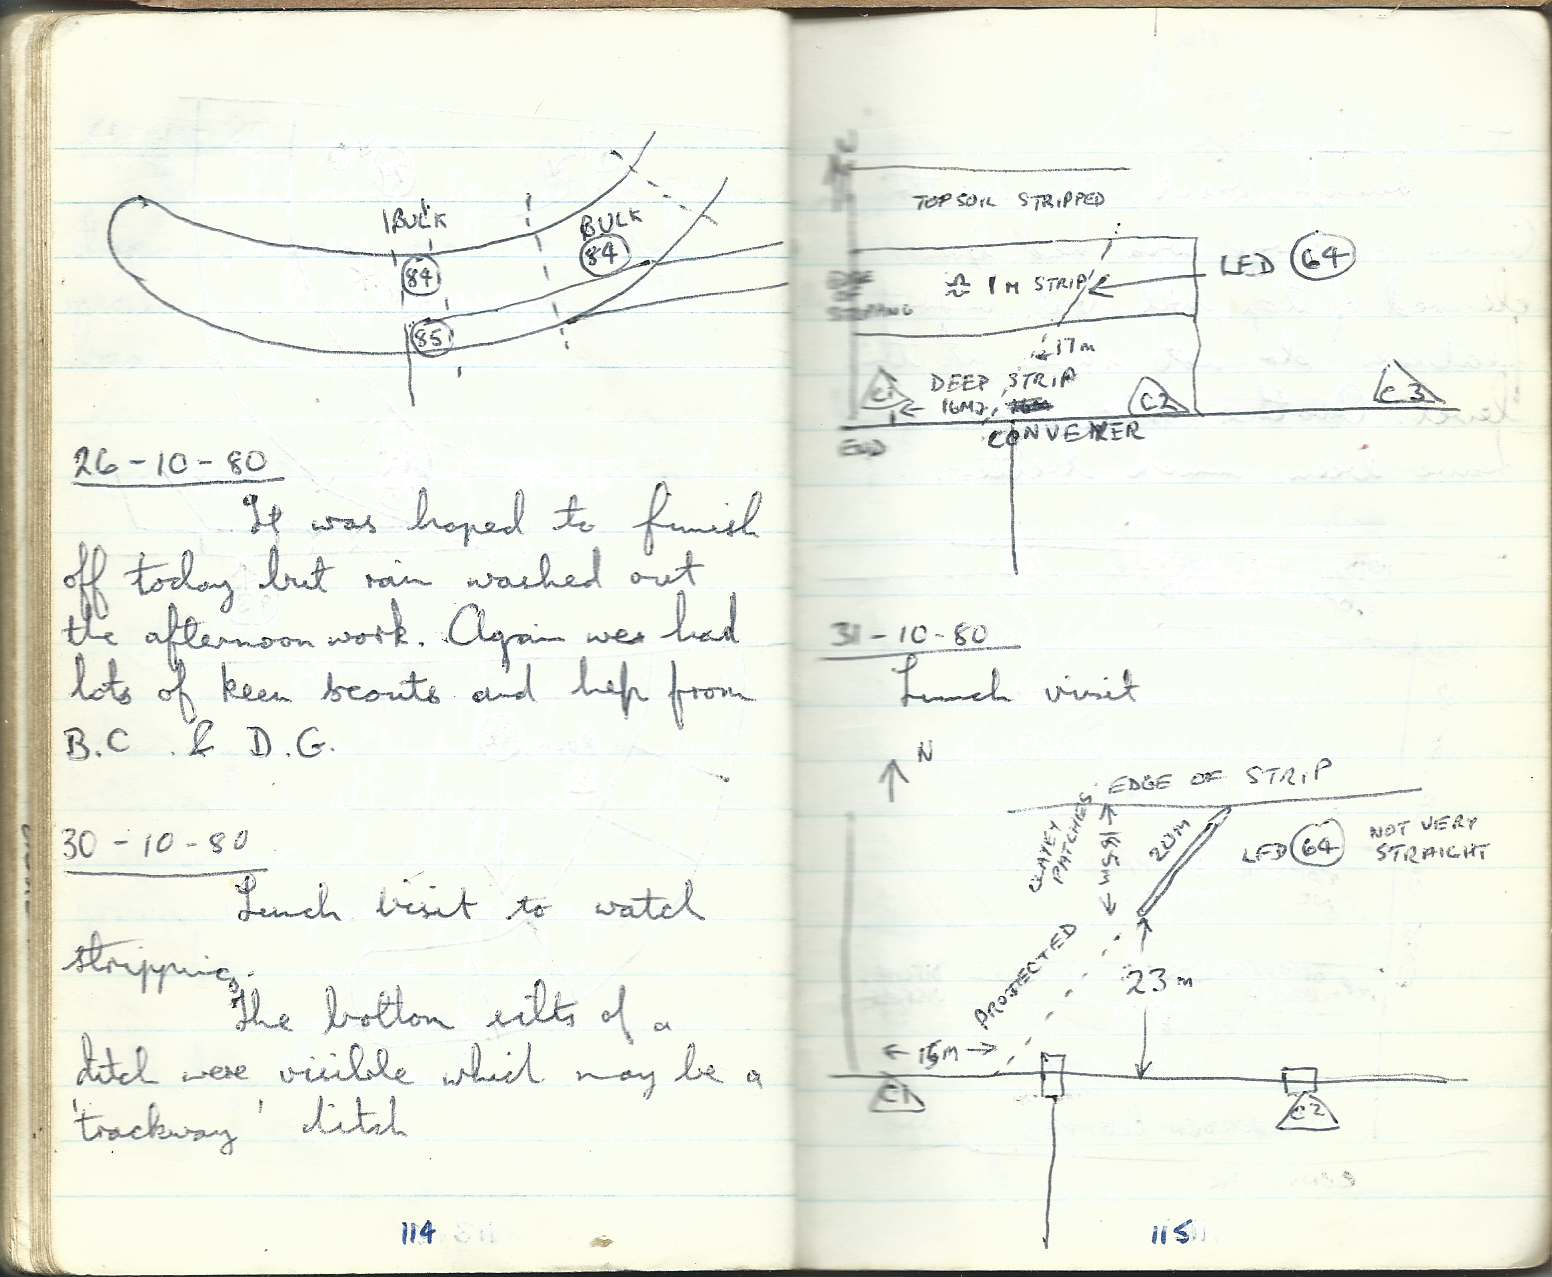 BULK
BULK
84
84
85
26-10-80
It was hoped to finish
off today but rain washed out
the afternoon work. Again we had
lots of keen scouts and help from
B.C. & D.G.
30-10-80
Lunch visit to watch
stripping.
The bottom silts of a
ditch were visible which may be a
'trackway' ditch
114
TOPSOIL STRIPPED
EDGE
OF
STRIPPING
≏ 1M STRIP
LFD 64
17m
DEEP STRIP
C1
16M
C2
C3
CONVEYER
END
31-10-80
Lunch visit
N
EDGE OF STRIP
CLAYEY
PATCHES
20m
LFD 64 NOT VERY
STRAIGHT
PROJECTED
23m
15M
C1
C2
115